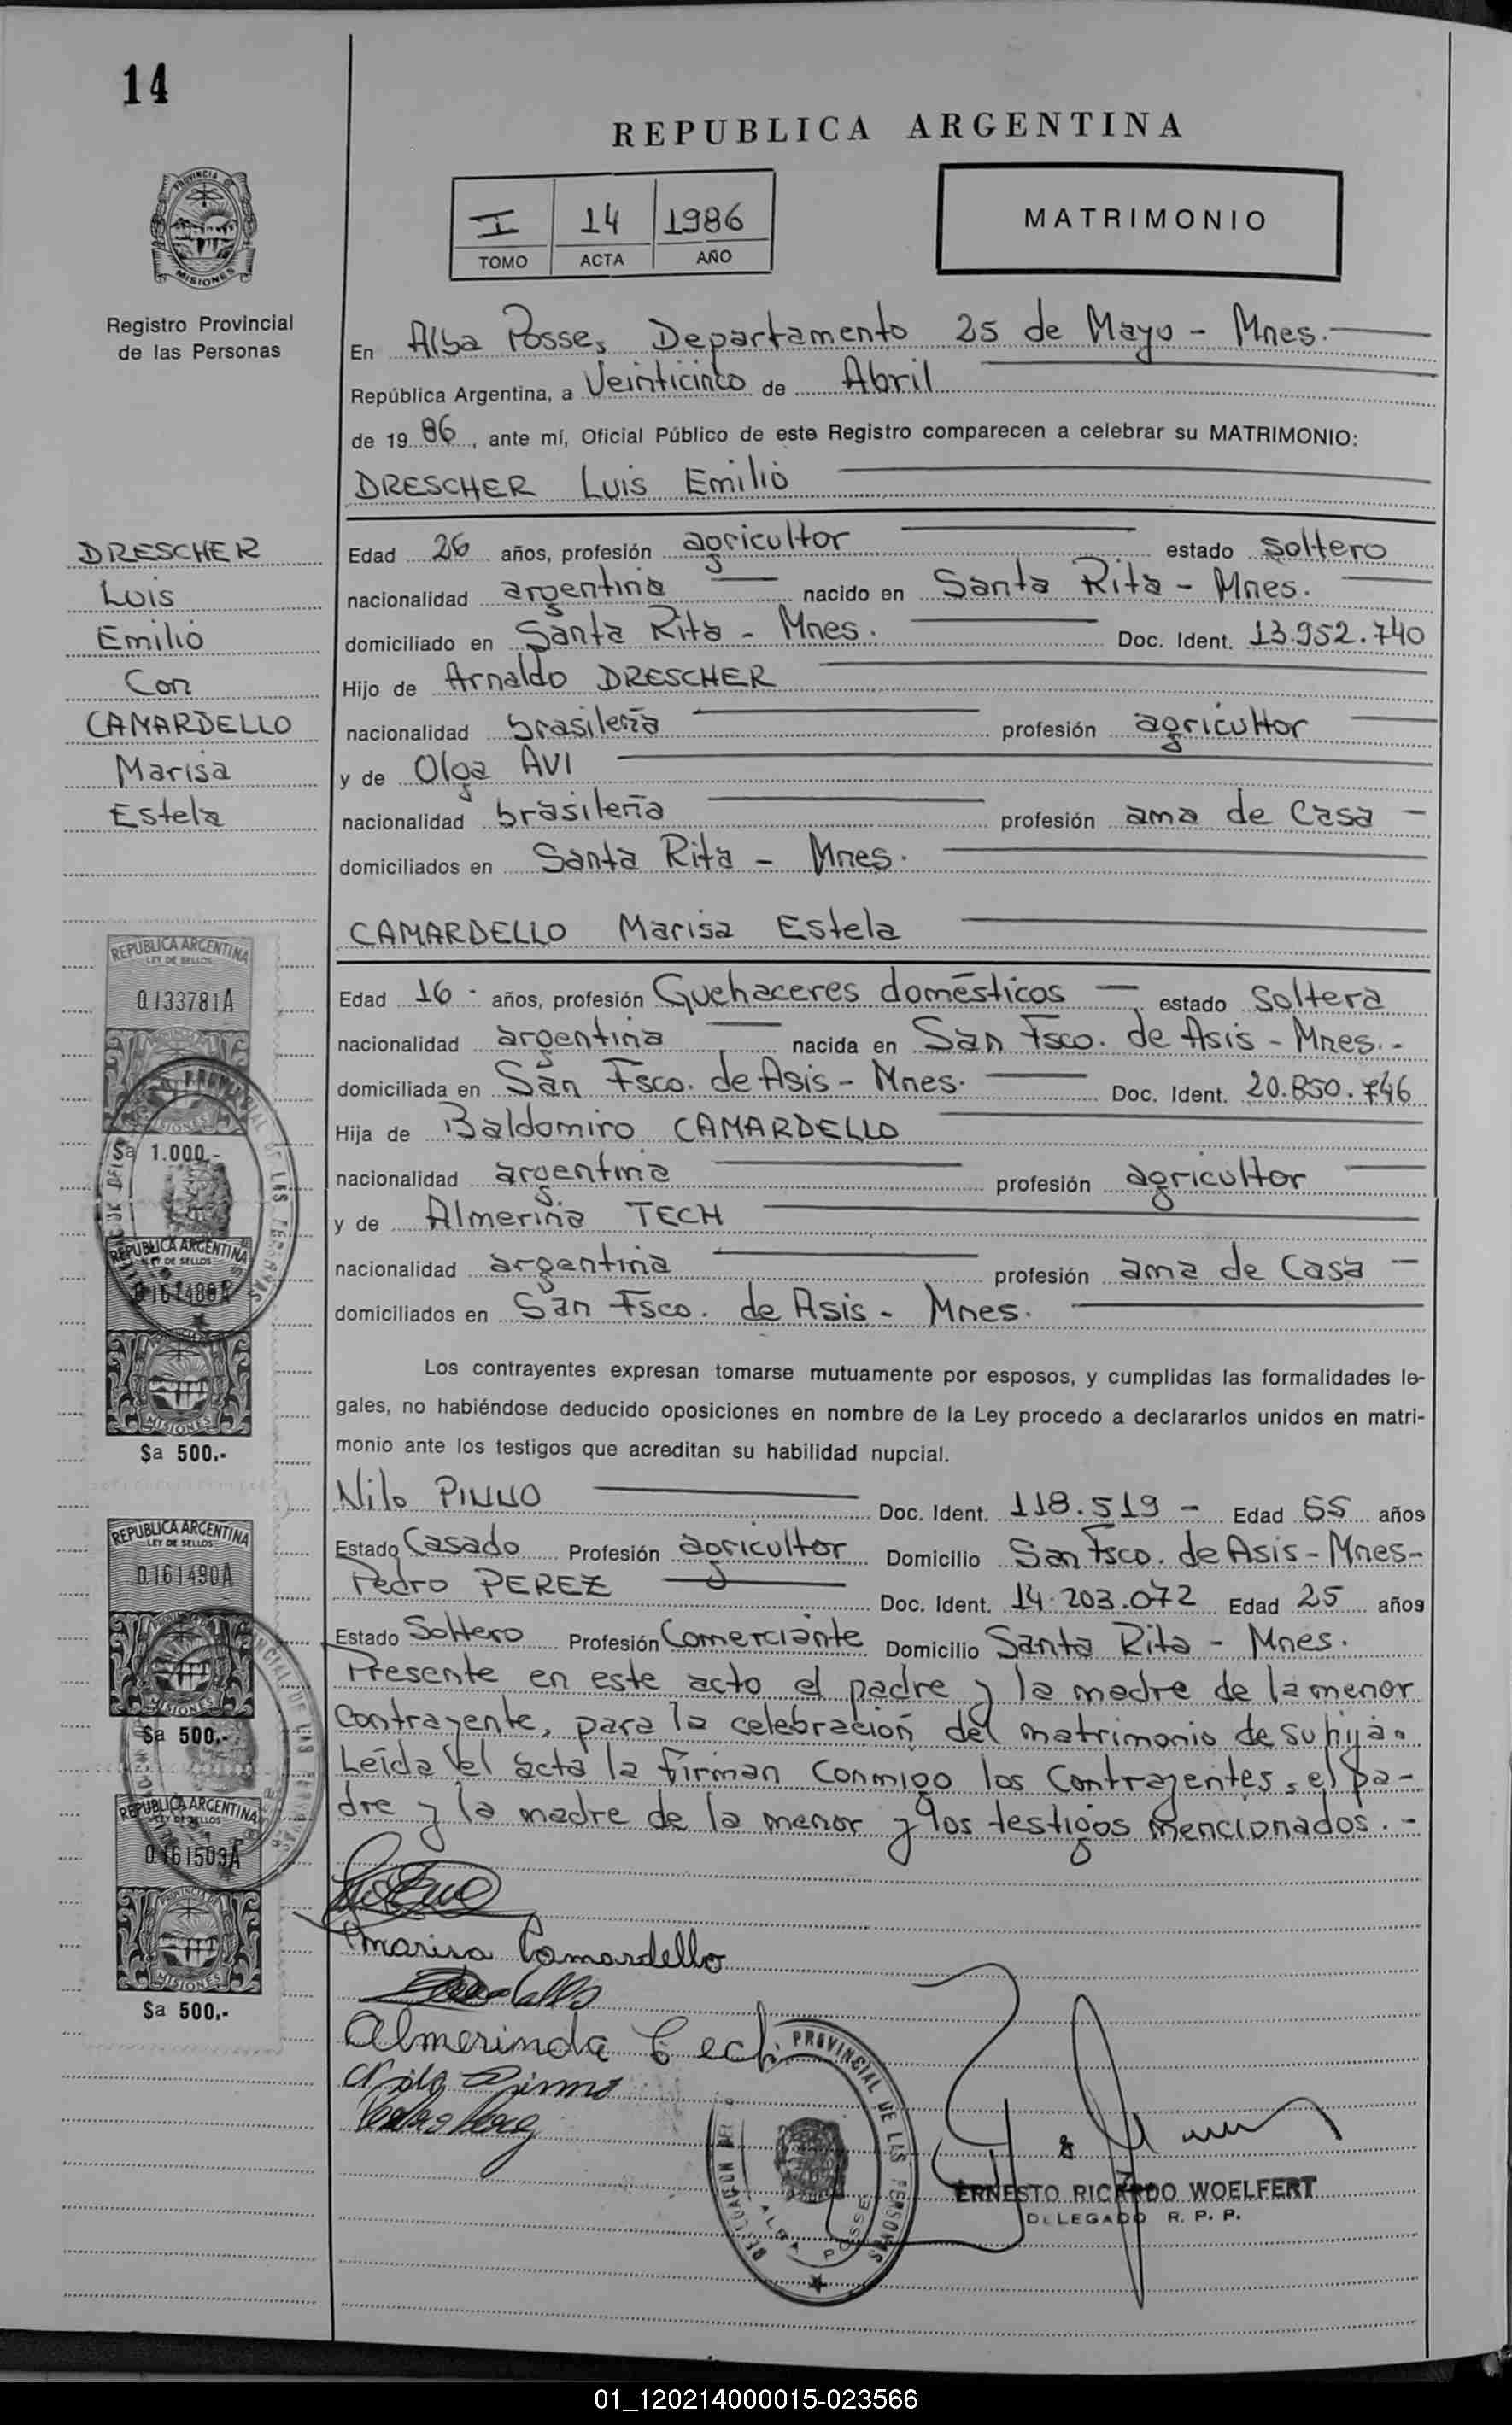 14
REPUBLICA ARGENTINA
PROVINCIA DE
MISIONES
I 14 1986
TOMO ACTA AÑO
MATRIMONIO
Registro Provincial
de las Personas
En Alba Posse, Departamento 25 de Mayo - Mnes.
República Argentina, a Veinticinco de Abril
de 19 86, ante mí, Oficial Público de este Registro comparecen a celebrar su MATRIMONIO:
DRESCHER Luis Emilio
DRESCHER
Luis
Emilio
Con
CAMARDELLO
Marisa
Estela
Edad 26 años, profesión agricultor estado Soltero
nacionalidad argentina nacido en Santa Rita - Mnes.
domiciliado en Santa Rita - Mnes. Doc. Ident. 13.952.740
Hijo de Arnaldo DRESCHER
nacionalidad brasileña profesión agricultor
y de Olga AVI
nacionalidad brasileña profesión ama de Casa -
domiciliados en Santa Rita - Mnes.
CAMARDELLO Marisa Estela
Edad 16 - años, profesión Quehaceres domésticos - estado Soltera
nacionalidad argentina nacida en San Fsco. de Asis - Mnes. -
domiciliada en San Fsco. de Asis - Mnes. Doc. Ident. 20.850.746
Hija de Baldomiro CAMARDELLO
nacionalidad argentina profesión agricultor
y de Almerina TECH
nacionalidad argentina profesión ama de Casa -
domiciliados en San Fsco. de Asis - Mnes.
Los contrayentes expresan tomarse mutuamente por esposos, y cumplidas las formalidades le-
gales, no habiéndose deducido oposiciones en nombre de la Ley procedo a declararlos unidos en matri-
monio ante los testigos que acreditan su habilidad nupcial.
Nilo PINNO Doc. Ident. 118.519 - Edad 55 años
Estado Casado Profesión agricultor Domicilio San Fsco. de Asis - Mnes -
Pedro PEREZ Doc. Ident. 14.203.072 Edad 25 años
Estado Soltero Profesión Comerciante Domicilio Santa Rita - Mnes.
Presente en este acto el padre y la madre de la menor
Contrayente, para la celebración del matrimonio de su hija.
Leída el acta la firman Conmigo los Contrayentes, el pa-
dre y la madre de la menor y los testigos mencionados. -
REPUBLICA ARGENTINA
LEY DE SELLOS
0.133781A
MISIONES
$a 1.000.-
REPUBLICA ARGENTINA
LEY DE SELLOS
MISIONES
$a 500.-
REPUBLICA ARGENTINA
LEY DE SELLOS
0.161490A
MISIONES
$a 500.-
REPUBLICA ARGENTINA
LEY DE SELLOS
0.161503A
PROVINCIA DE
MISIONES
$a 500.-
Marisa Camardello
Almerinda Tech
Nilo Pinno
PROVINCIAL DE LAS PERSONAS
ALBA POSSE
ERNESTO RICARDO WOELFERT
DELEGADO R. P. P.
01_120214000015-023566